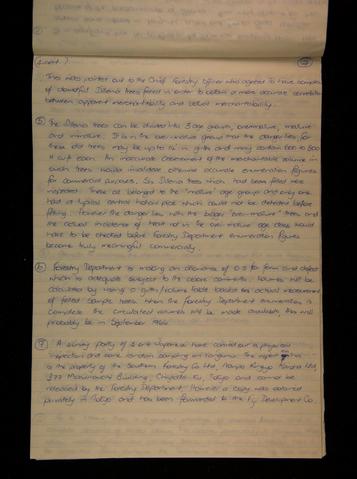 (cont.)
This was pointed out to the Chief Forestry Officer who agreed to have samples
of doubtful trees felled in order to obtain a more accurate correlation
between apparent merchantability and actual merchantability.
The trees can be divided into 3 age groups, overmature, mature
and immature. It is in the over-mature group that the danger lies for
these old trees may be up to in girth and may contain 600 to 800
H cu ft each. An inaccurate assessment of the merchantable volume in
such trees would invalidate otherwise accurate enumeration figures
for commercial purposes. Six trees which had been felled were
inspected. These all belonged to the "mature" age group and only one
had a typical central hollow pipe which could not be detected before
felling. However the danger lies with the bigger "over-mature" trees and
the actual incidence of heart rot in the over mature age class would
have to be checked before Forestry Department enumeration figures
became truly meaningful commercially.
6 Forestry Department is making an allowance of 0.5 for form and defect
which is adequate subject to the above comments. Volumes will be
calculated by using a girth/volume table based on the actual measurement
of felled sample trees. When the Forestry Department enumeration is
complete the calculated volumes will be made available, this will
probably be in September 1966.
7 A survey party of Japanese have carried out a physical
inspection and some random sampling
is the property of the Southern Forestry Co Ltd,
Building, Chiyoda Ku, Tokyo and cannot be
released by the Forestry Department. However a copy was obtained
privately in Tokyo and has been forwarded to the Fiji Development Co.